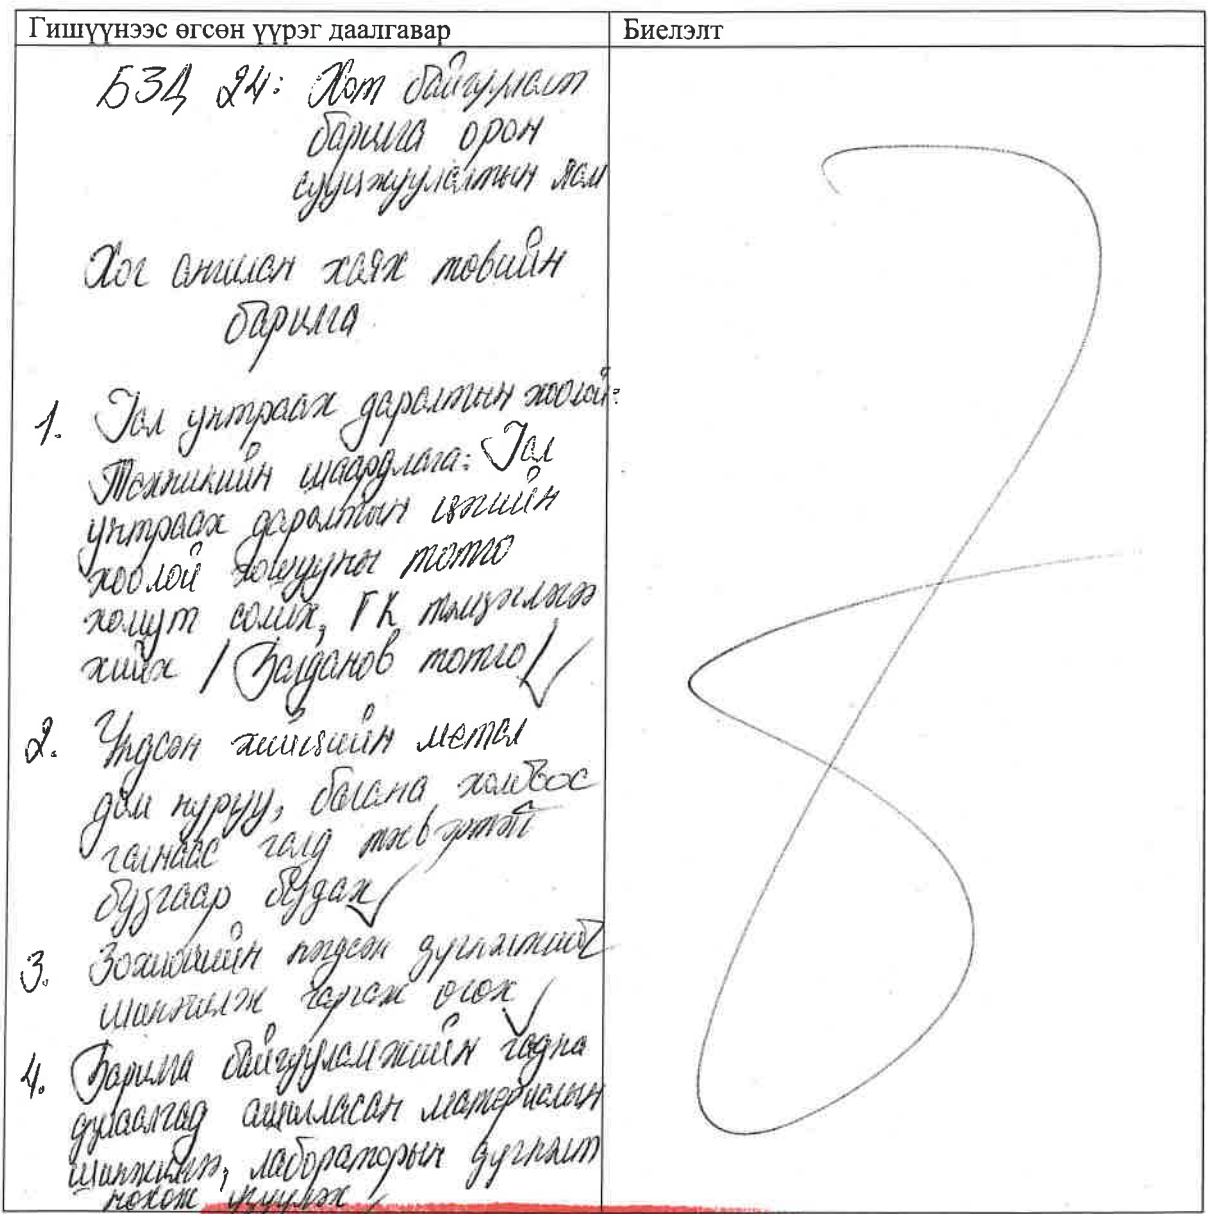 Гишүүнээс өгсөн үүрэг даалгавар
Биелэлт
БЗД 24: Хот байгуулалт
барилга орон
сууцжуулалтын
Хог ангилан хаях төвийн
барилга
1. Гал унтраах даралтын хоолой:
Техникийн шаардлага: Гал
унтраах даралтын цэгийн
хоолой хошууны тотго
хомут солих, ГК тэмцэгжүүлэлт
хийх / Багданов тотго/ ✓
2. Үндсэн хийцийн метал
дам нуруу, багана, холбоос
галнаас галд тэсвэртэй
будгаар будах ✓
3. Зохиогчийн нэгдсэн дүгнэлтийг
шинэчилж гаргаж өгөх ✓
4. Барилга байгууламжийн гадна
дулаалгад ашигласан материалын
шинжилгээ, лабораторын дүгнэлт
үзүүлэх